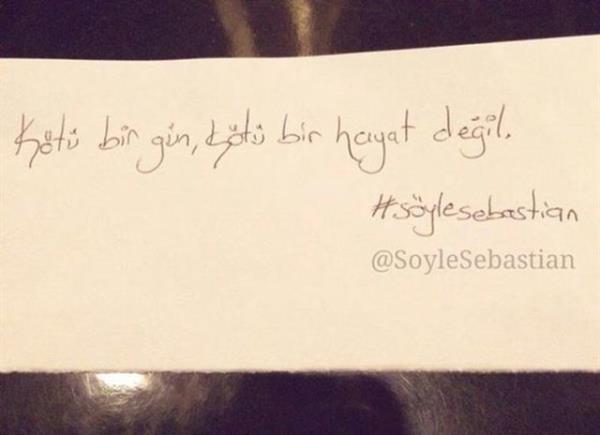 Kötü bir gün, kötü bir hayat değil.
#söylesebastian
@SoyleSebastian